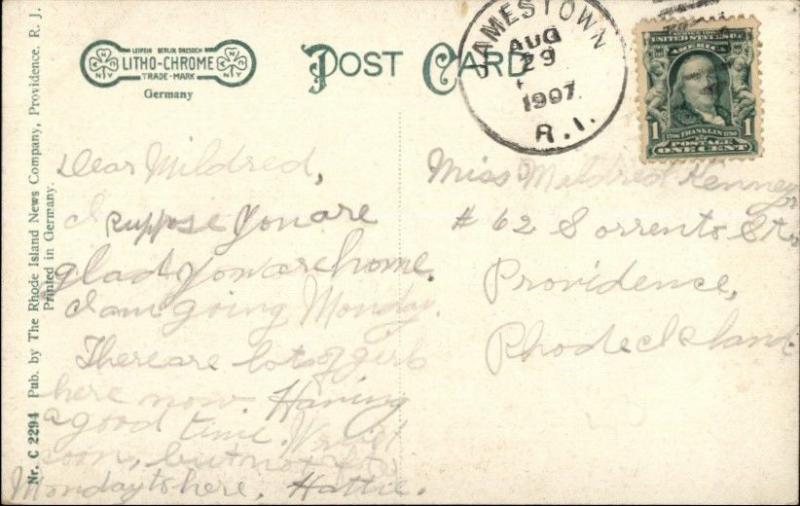 Nr. C 2294 Pub. by The Rhode Island News Company, Providence, R. J.
Printed in Germany.
LEIPZIG BERLIN DRESDEN
LITHO-CHROME
TRADE-MARK
N Y
N Y
Germany
POST CARD
JAMESTOWN
AUG
29
1907
R.I.
SERIES 1902
UNITED STATES OF
AMERICA
1 FRANKLIN 1
POSTAGE
ONE CENT
Dear Mildred,
I suppose you are
glad you are home.
I am going Monday.
There are lots of girls
here now. Having
a good time. Write
soon, but not
Monday to here. Hattie.
Miss Mildred Kenney
# 62 Sorrento St.
Providence,
Rhode Island